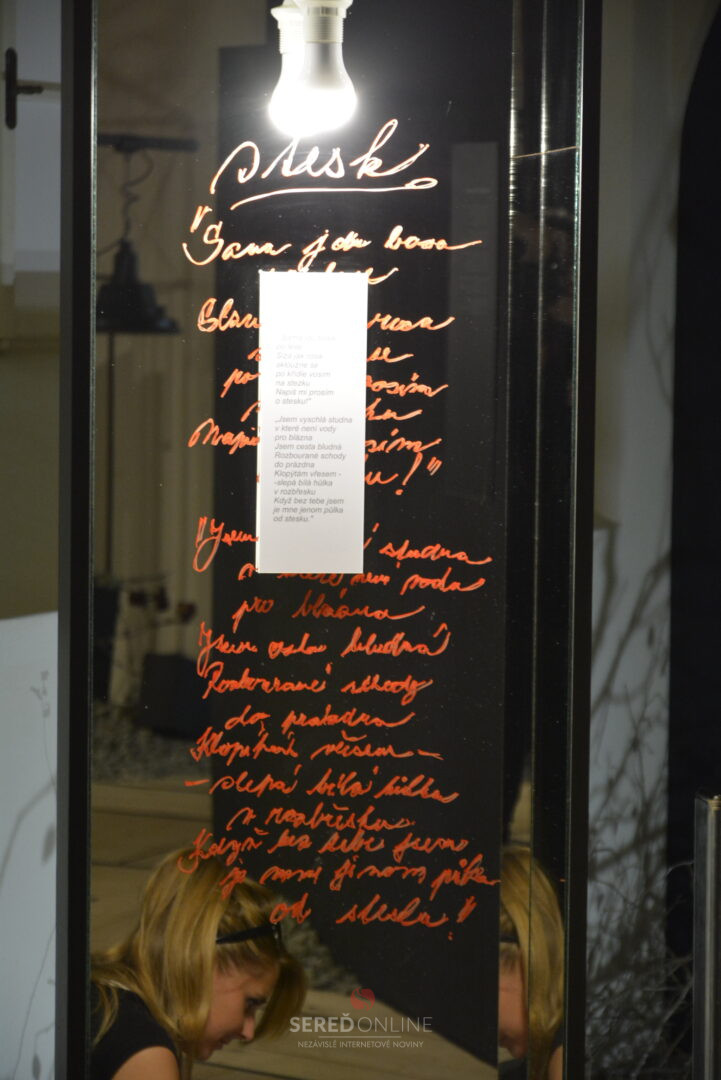 stesk
"Sama jdu bosa
se
po
Napiš
!"
"Jsem studna
v které není voda
pro blázna
Jsem cesta bludná
Rozbourané schody
do prázdna
Klopýtám vřesem -
- slepá bílá hůlka
v rozbřesku
Když bez tebe jsem
je mne jenom půlka
od stesku!"
Slza jak rosa
sklouzne se
po křídle vosím
na stezku
Napiš mi prosím
o stesku!"
„Jsem vyschlá studna
v které není vody
pro blázna
Jsem cesta bludná
Rozbourané schody
do prázdna
Klopýtám vřesem -
-slepá bílá hůlka
v rozbřesku
Když bez tebe jsem
je mne jenom půlka
od stesku."
SEREĎONLINE
NEZÁVISLÉ INTERNETOVÉ NOVINY